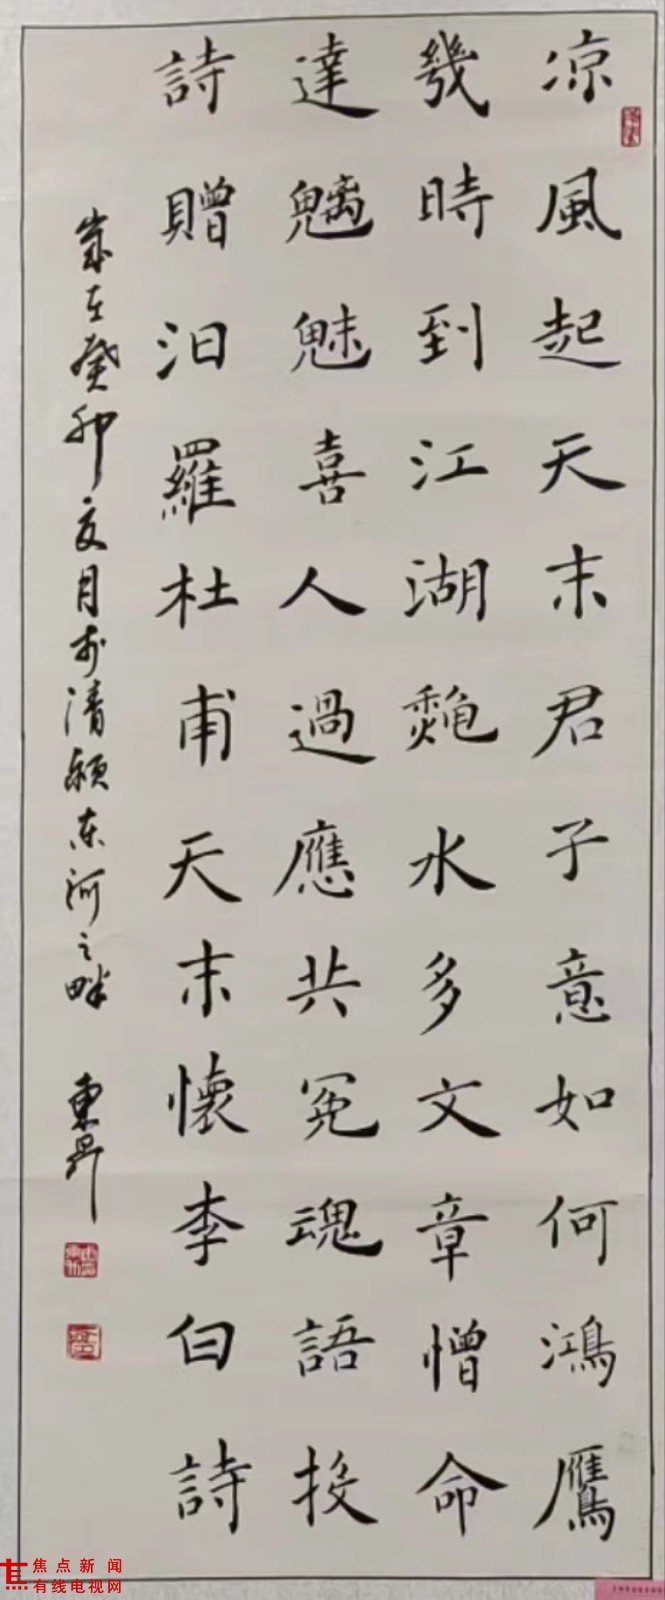 凉風起天末君子意如何鴻鴈
幾時到江湖龝水多文章憎命
達魑魅喜人過應共冤魂語投
詩贈汨羅杜甫天末懷李白詩
歲在癸卯夏月於清潁東河之畔 東昇
焦点新闻
有线电视网